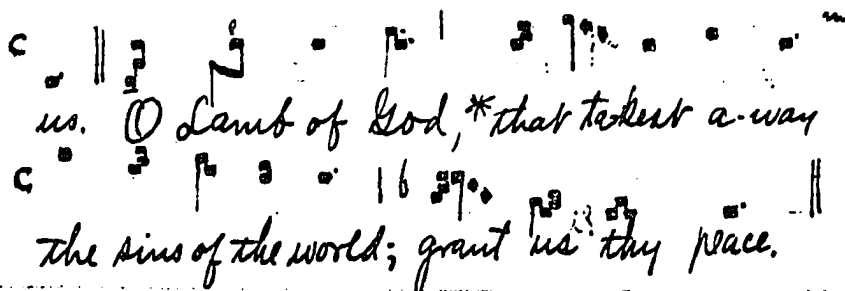 us. O Lamb of God,* that takest a-way
the sins of the world; grant us thy peace.